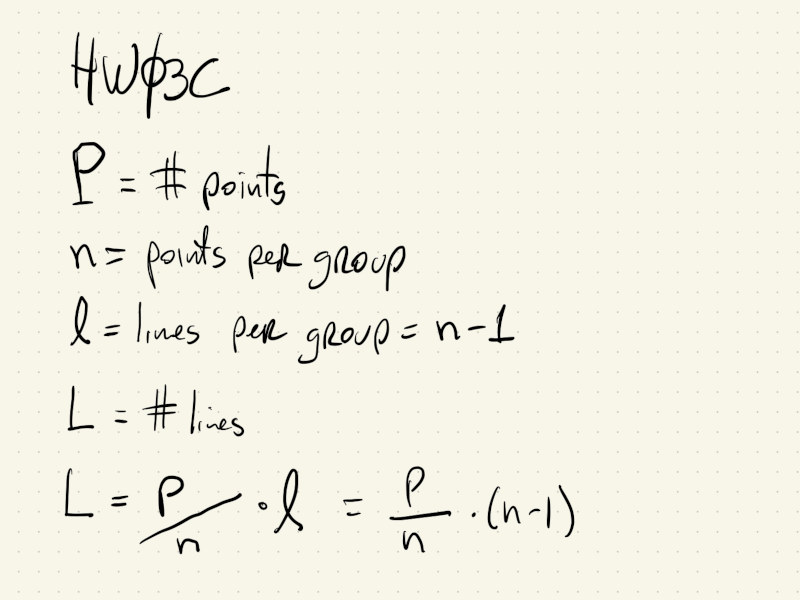 HWφ3C
P = # points
n = points per group
l = lines per group = n-1
L = # lines
L = P/n · l = P/n · (n-1)